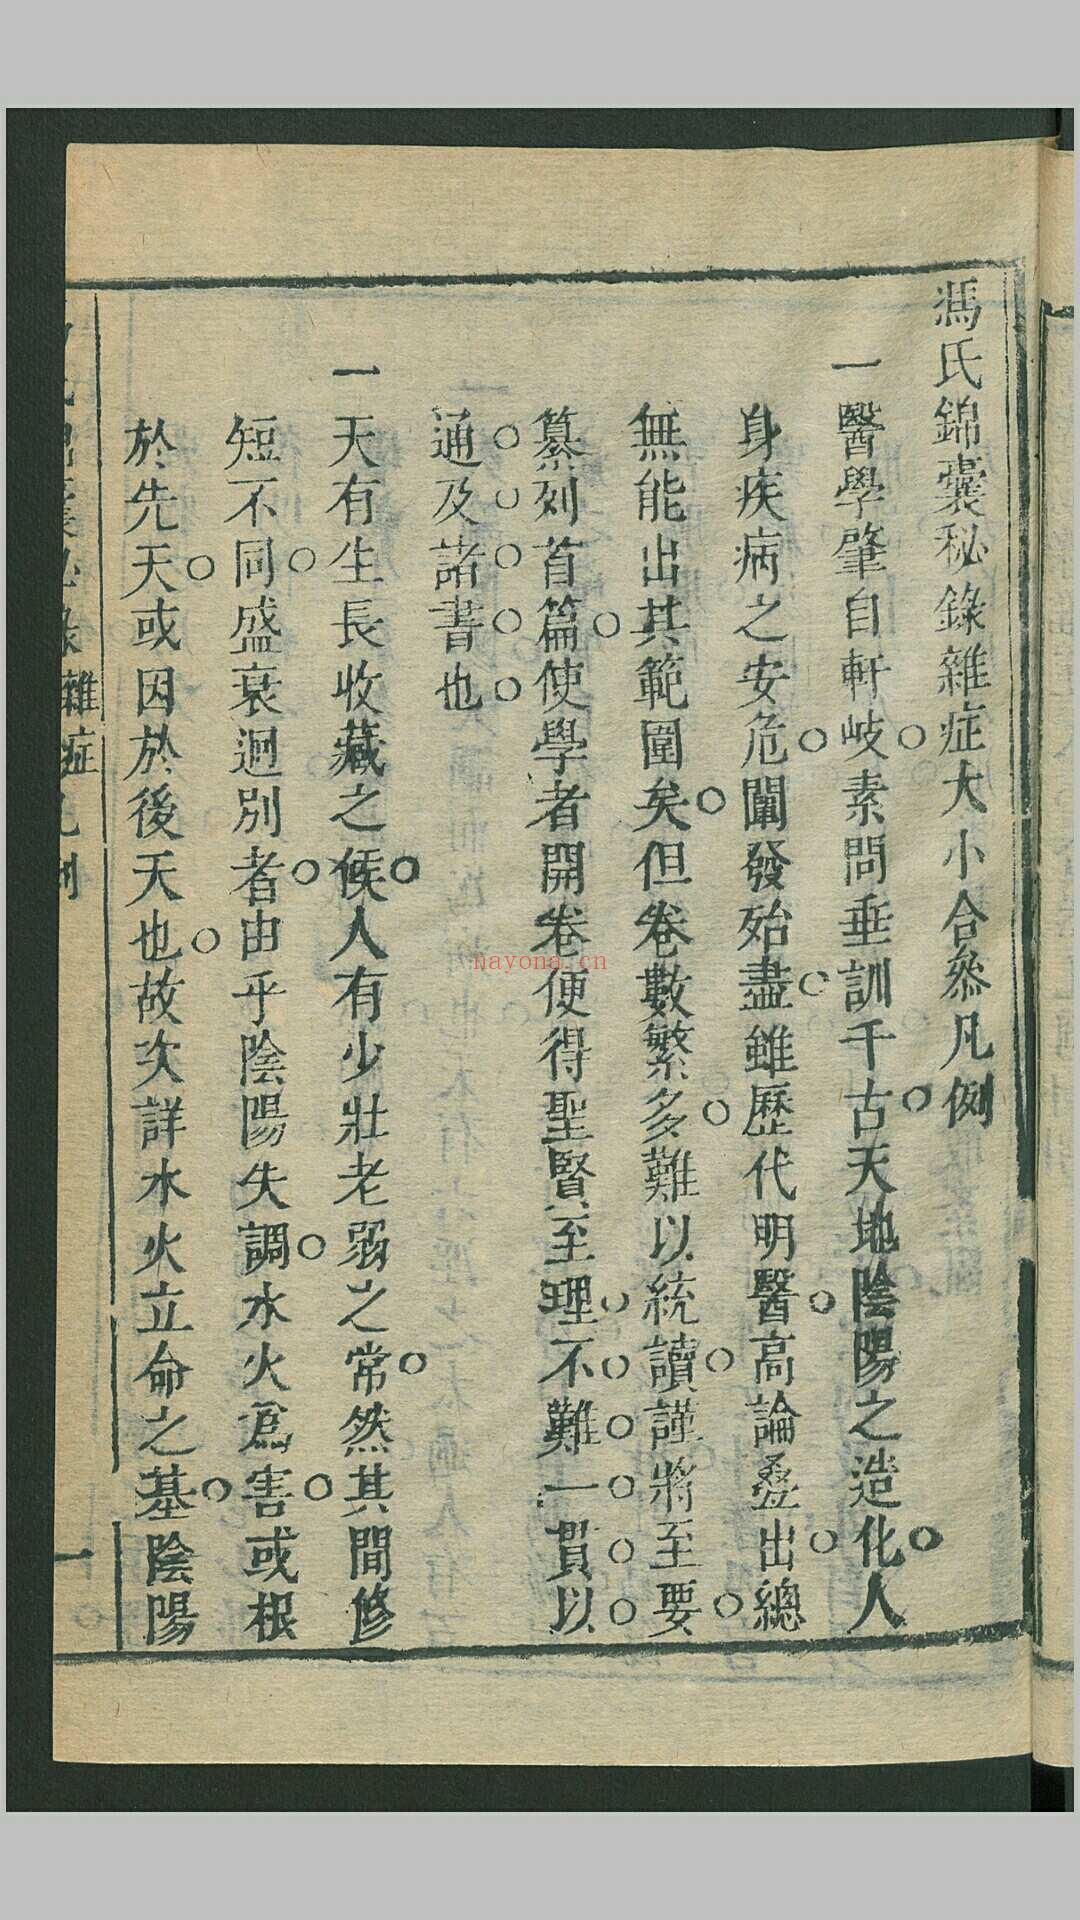 馮氏錦囊秘錄雜症大小合叅凡例
一醫學肇自軒岐素問垂訓千古天地陰陽之造化人
身疾病之安危闡發殆盡雖歷代明醫高論叠出總
無能出其範圍矣但卷數繁多難以統讀謹將至要
纂列首篇使學者開卷便得聖賢至理不難一貫以
通及諸書也
一天有生長收藏之候人有少壯老弱之常然其間修
短不同盛衰迥別者由乎陰陽失調水火爲害或根
於先天或因於後天也故次詳水火立命之基陰陽
雜症凡例
一
nayona.cn